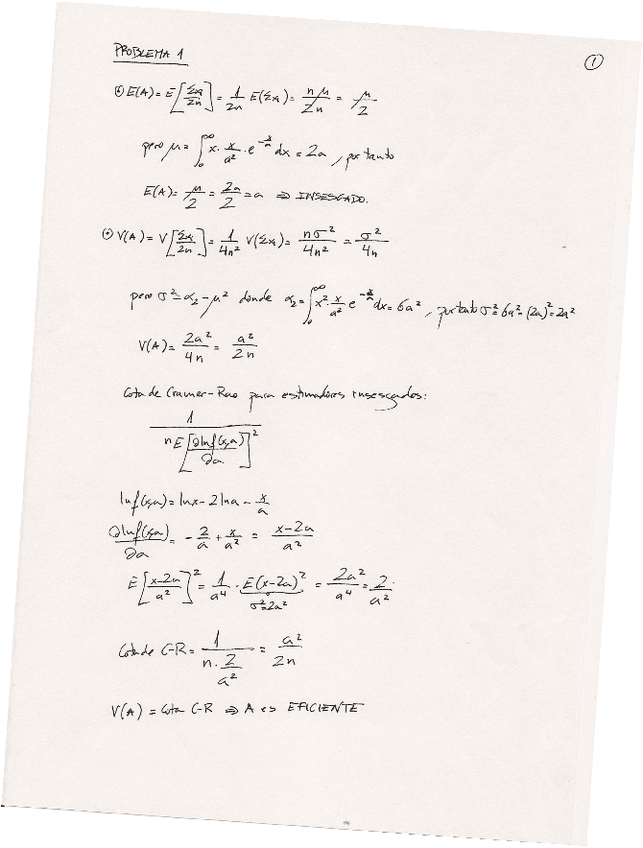 PROBLEMA 1
1
E(A) = E[Σxi/2n] = 1/2n E(Σxi) = nμ/2n = μ/2
pero μ = ∫₀^∞ x · x/a² · e^(-x/a) dx = 2a, por tanto
E(A) = μ/2 = 2a/2 = a ⇒ INSESGADO.
V(A) = V[Σxi/2n] = 1/4n² V(Σxi) = nσ²/4n² = σ²/4n
pero σ² = α₂ - μ² donde α₂ = ∫₀^∞ x² · x/a² e^(-x/a) dx = 6a², por tanto σ² = 6a² - (2a)² = 2a²
V(A) = 2a²/4n = a²/2n
Cota de Cramer-Rao para estimadores insesgados:
1/(nE[∂lnf(x,a)/∂a]²)
lnf(x,a) = lnx - 2lna - x/a
∂lnf(x,a)/∂a = -2/a + x/a² = x-2a/a²
E[x-2a/a²]² = 1/a⁴ · E(x-2a)² = 2a²/a⁴ = 2/a²
σ²=2a²
Cota de C-R = 1/(n · 2/a²) = a²/2n
V(A) = Cota C-R ⇒ A es EFICIENTE